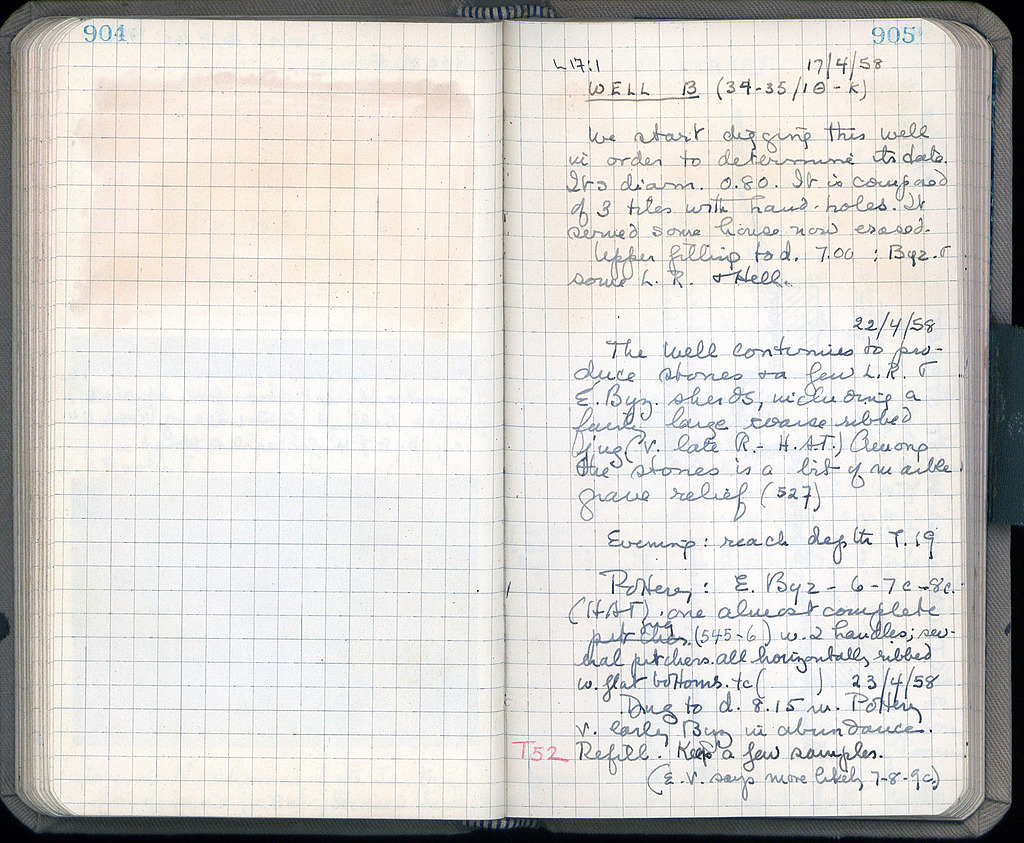 904
905
L17:1 17/4/58
WELL B (34-35/10-K)
We start digging this well
in order to determine its date.
Its diam. 0.80. It is composed
of 3 tiles with hand-holes. It
served some house now erased.
Upper filling to d. 7.00 : Byz. &
some L. R. & Hell.
22/4/58
The well continues to pro-
duce stones & a few L.R. &
E. Byz. sherds, including a
fairly large coarse ribbed
jug (V. late R. - H.A.T.) Among
the stones is a bit of marble
grave relief (527)
Evening: reach depth 7.19
Pottery: E. Byz - 6-7c-8c.
(HAT), one almost complete
jug (545-6) w. 2 handles; sev-
eral pitchers all horizontally ribbed
w. flat bottoms. tc ( ) 23/4/58
Dug to d. 8.15 m. Pottery
v. early Byz in abundance.
T52 Refill. Keep a few samples.
(E.V. says more likely 7-8-9c.)